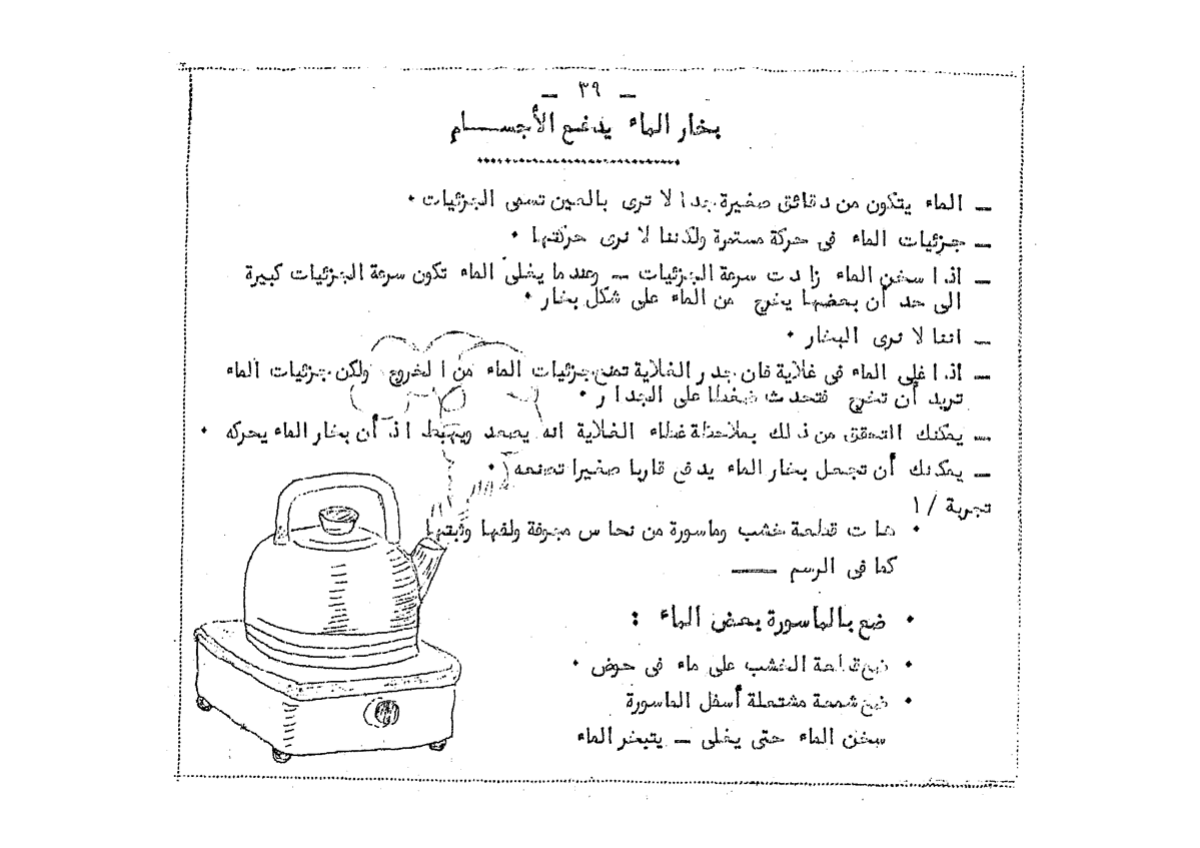 — ٣٩ —
بخار الماء يدفع الأجسام
— الماء يتكون من دقائق صغيرة جدا لا ترى بالعين تسمى الجزئيات ٠
— جزئيات الماء فى حركة مستمرة ولكننا لا نرى حركتها ٠
— اذا سخن الماء زادت سرعة الجزئيات — وعندما يغلى الماء تكون سرعة الجزئيات كبيرة
الى حد أن بعضها يخرج من الماء على شكل بخار ٠
— اننا لا نرى البخار ٠
— اذا غلى الماء فى غلاية فان جدر الغلاية تمنع جزئيات الماء من الخروج ولكن جزئيات الماء
تريد أن تخرج فتحدث ضغطا على الجدار ٠
— يمكنك التحقق من ذلك بملاحظة غطاء الغلاية انه يصعد ويهبط اذ أن بخار الماء يحركه ٠
— يمكنك أن تجعل بخار الماء يدفع قاربا صغيرا تصنعه ٠
تجربة / ١
• هات قطعة خشب وماسورة من نحاس مجوفة ولفها وثبتها
كما فى الرسم ——
• ضع بالماسورة بعض الماء :
• ضع قطعة الخشب على ماء فى حوض ٠
• ضع شمعة مشتعلة أسفل الماسورة
سخن الماء حتى يغلى — يتبخر الماء